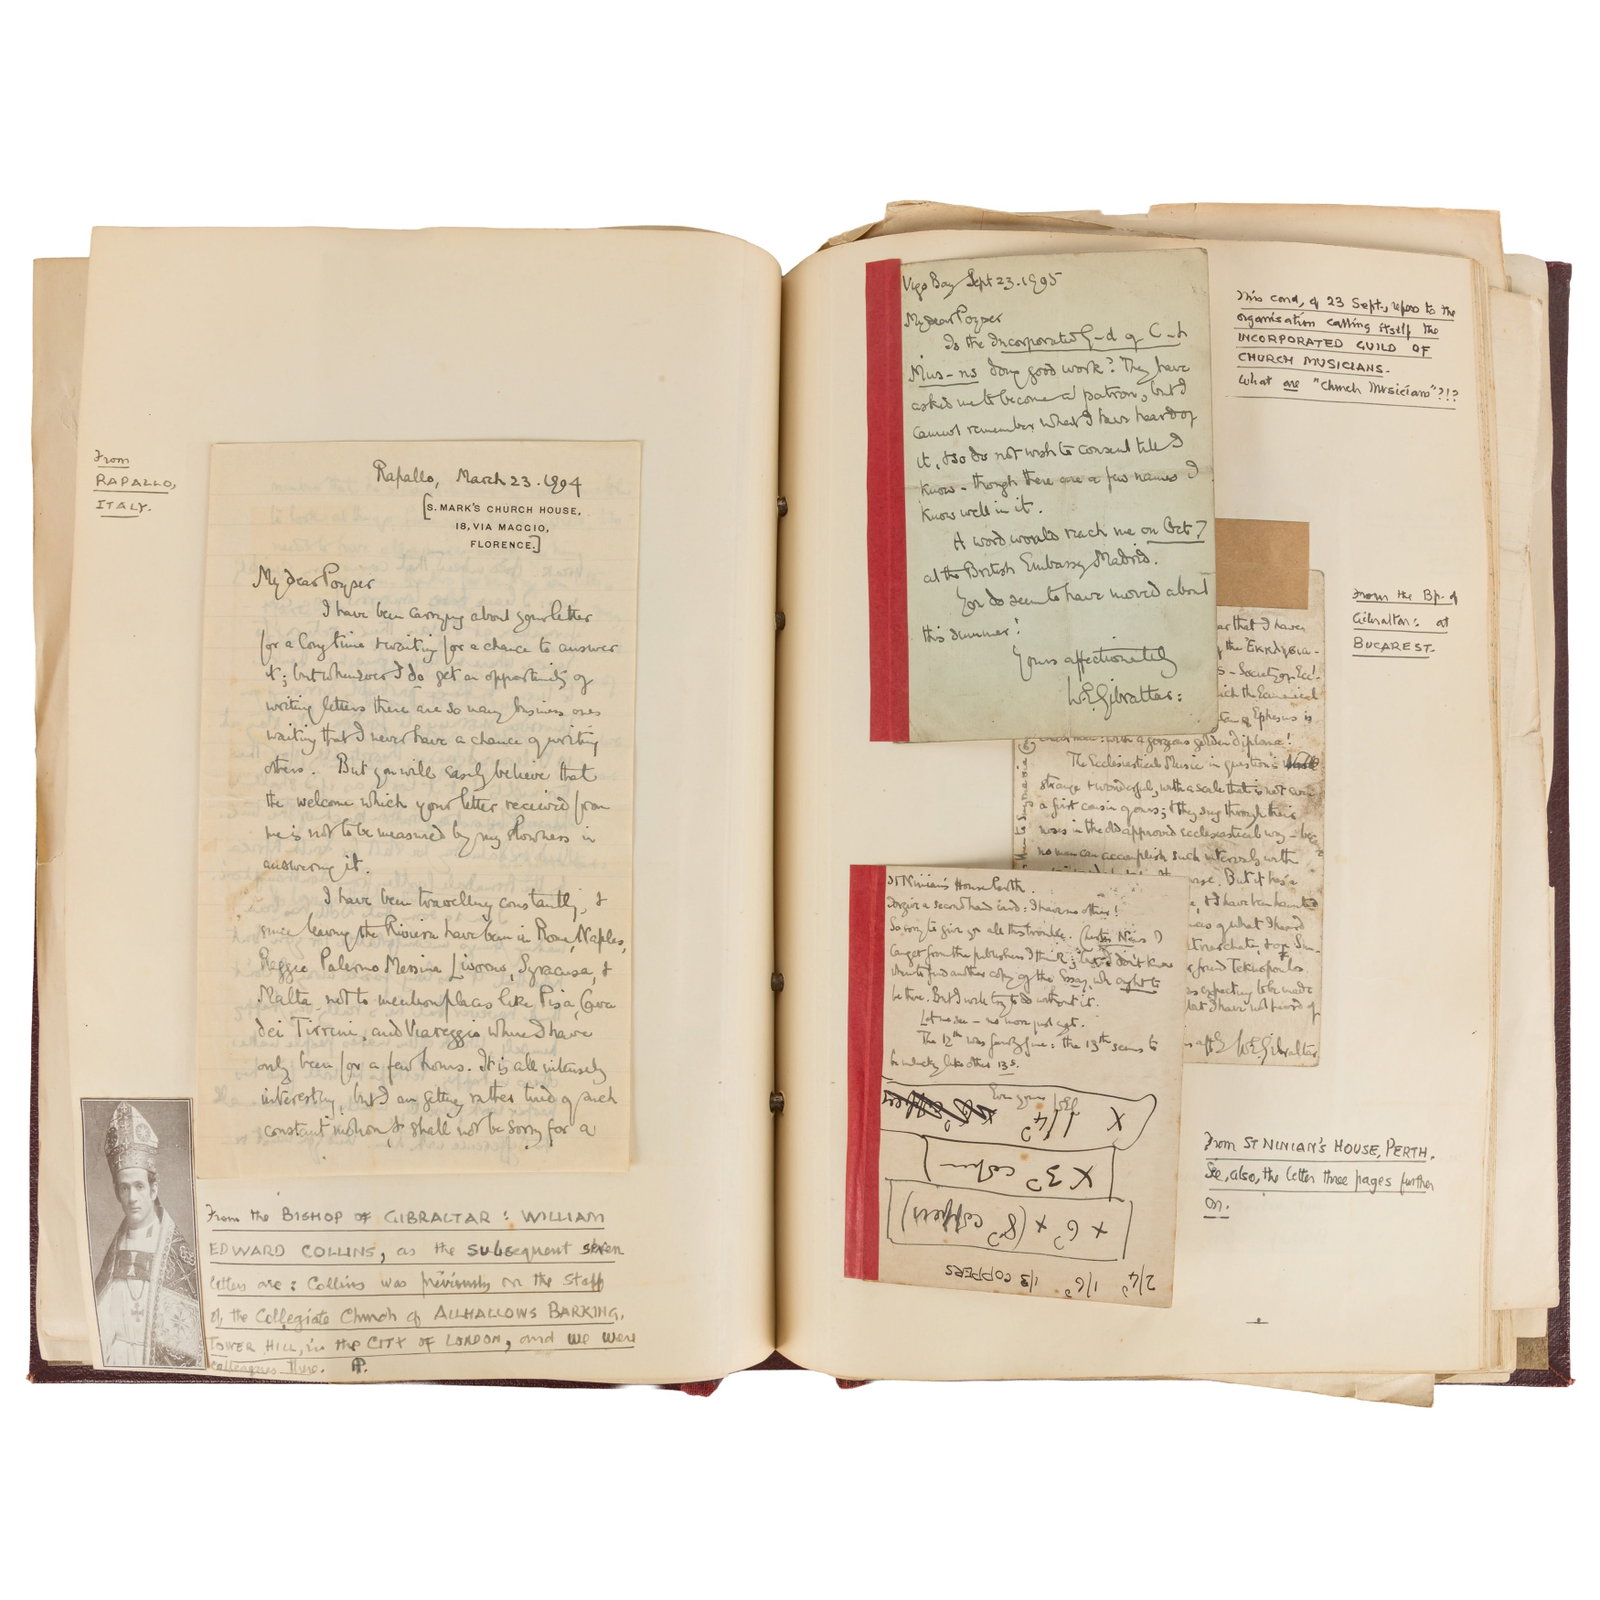 From
RAPALLO,
ITALY.
Rapallo, March 23. 1904
[S. MARK'S CHURCH HOUSE,
18, VIA MAGGIO,
FLORENCE.]
My dear Poyser
I have been carrying about your letter
for a long time & waiting for a chance to answer
it; but whenever I do get an opportunity of
writing letters there are so many business ones
waiting that I never have a chance of writing
others. But you will easily believe that
the welcome which your letter received from
me is not to be measured by my slowness in
answering it.
I have been travelling constantly, &
since leaving the Riviera have been in Rome, Naples,
Reggio Palermo Messina Livorno, Syracusa, &
Malta, not to mention places like Pisa, Cava
dei Tirreni, and Viareggio where I have
only been for a few hours. It is all intensely
interesting, but I am getting rather tired of such
constant motion & shall not be sorry for a
From the BISHOP OF GIBRALTAR: WILLIAM
EDWARD COLLINS, as the subsequent seven
letters are: Collins was previously on the staff
of the Collegiate Church of ALLHALLOWS BARKING,
TOWER HILL, in the CITY OF LONDON, and we were
colleagues there. AP.
Vigo Bay Sept 23. 1905
My dear Poyser
Is the Incorporated G–d of C–h
Mus–ns doing good work? They have
asked me to become a patron, but I
cannot remember what I have heard of
it, & so do not wish to consent till I
know – though there are a few names I
know well in it.
A word would reach me on Oct 7
at the British Embassy Madrid.
You do seem to have moved about
this summer!
Yours affectionately
W.E. Gibraltar:
This card, of 23 Sept., refers to the
organisation calling itself the
INCORPORATED GUILD OF
CHURCH MUSICIANS.
What are "Church Musicians"?!?
From the Bp. of
Gibraltar: at
BUCAREST.
ar that I have
the
S – Society of Eccl:
ich the Ecumenical
Ephesus is
with a gorgeous golden diploma!
The Ecclesiastical Music in question is
strange & wonderful, with a scale that is not even
a first cousin of ours; & they sing through their
noses in the old approved ecclesiastical way – bec
no man can accomplish such intervals with
But it has a
& I have been haunted
of what I heard
found
expecting to be made
that I have not heard of
aff W.E. Gibraltar
St Ninian's House Perth.
Forgive a second hand card: I have no other!
So sorry to give you all this trouble. I
can get from the publishers I think; I don't know
where to find another copy of the Essay, wh ought to
be there. But I will try to do without it.
Let me see – no more just yet.
The 12th was fine: the 13th seems to
be unlucky like other 13s.
Ever yours
X 1/4
X 3
X 6 X (8 coppers)
1/3 COPPERS
2/4 1/6
From ST NINIAN'S HOUSE, PERTH.
See, also, the letter three pages further
on.